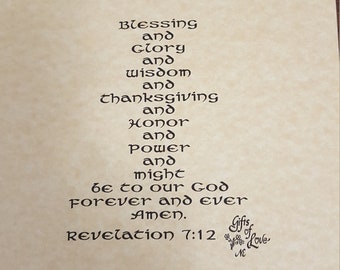 Blessing
and
Glory
and
Wisdom
and
Thanksgiving
and
Honor
and
Power
and
might
be to our God
Forever and ever
Amen.
Revelation 7:12
Gifts
of
Love